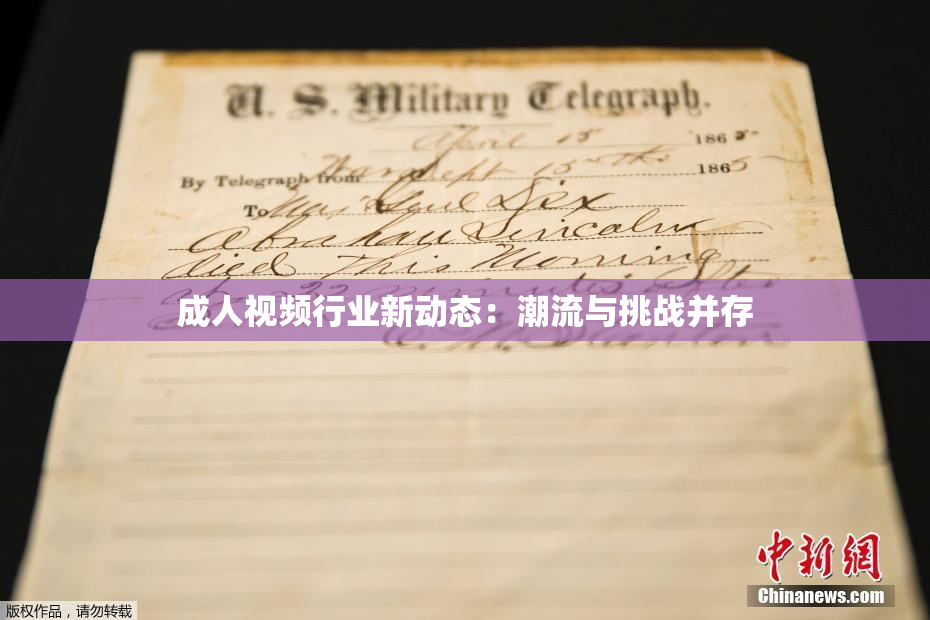 U. S. Military Telegraph.
April 15 1865
By Telegraph from War Dept 15th 1865
To Maj Genl Dix
Abraham Lincoln
died This Morning
22 minutes after
成人视频行业新动态：潮流与挑战并存
E. M. Stanton
中新网
Chinanews.com
版权作品，请勿转载